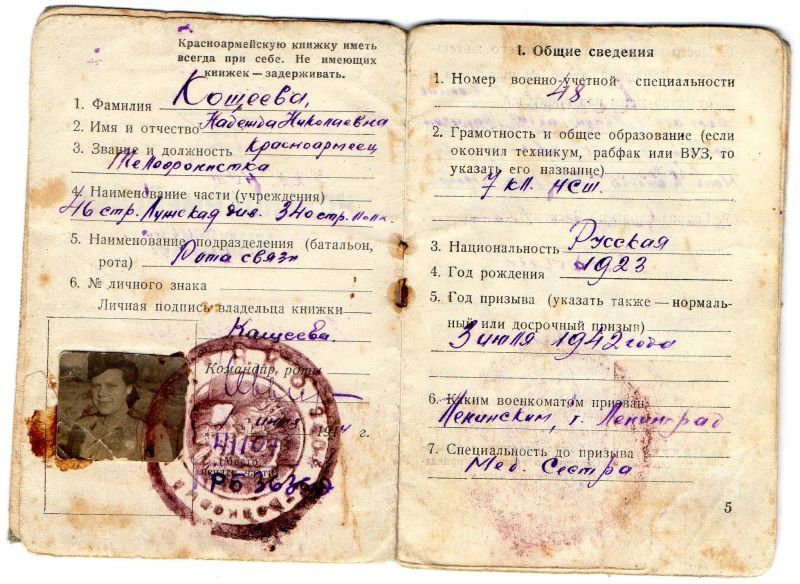 Красноармейскую книжку иметь
всегда при себе. Не имеющих
книжек — задерживать.
1. Фамилия Кощеева,
2. Имя и отчество Надежда Николаевна
3. Звание и должность Красноармеец
Телефонистка
4. Наименование части (учреждения)
46 стр. Лужская див. 340 стр. полк.
5. Наименование подразделения (батальон,
рота) Рота связи
6. № личного знака
Личная подпись владельца книжки
Кащеева
Командир роты
г.
I. Общие сведения
1. Номер военно-учетной специальности
48
2. Грамотность и общее образование (если
окончил техникум, рабфак или ВУЗ, то
указать его название)
7 кл. НСШ.
3. Национальность Русская
4. Год рождения 1923
5. Год призыва (указать также — нормаль-
ный или досрочный призыв)
3 июля 1942 года
6. Каким военкоматом призван
Ленинским, г. Ленинград
7. Специальность до призыва
Мед. Сестра
5